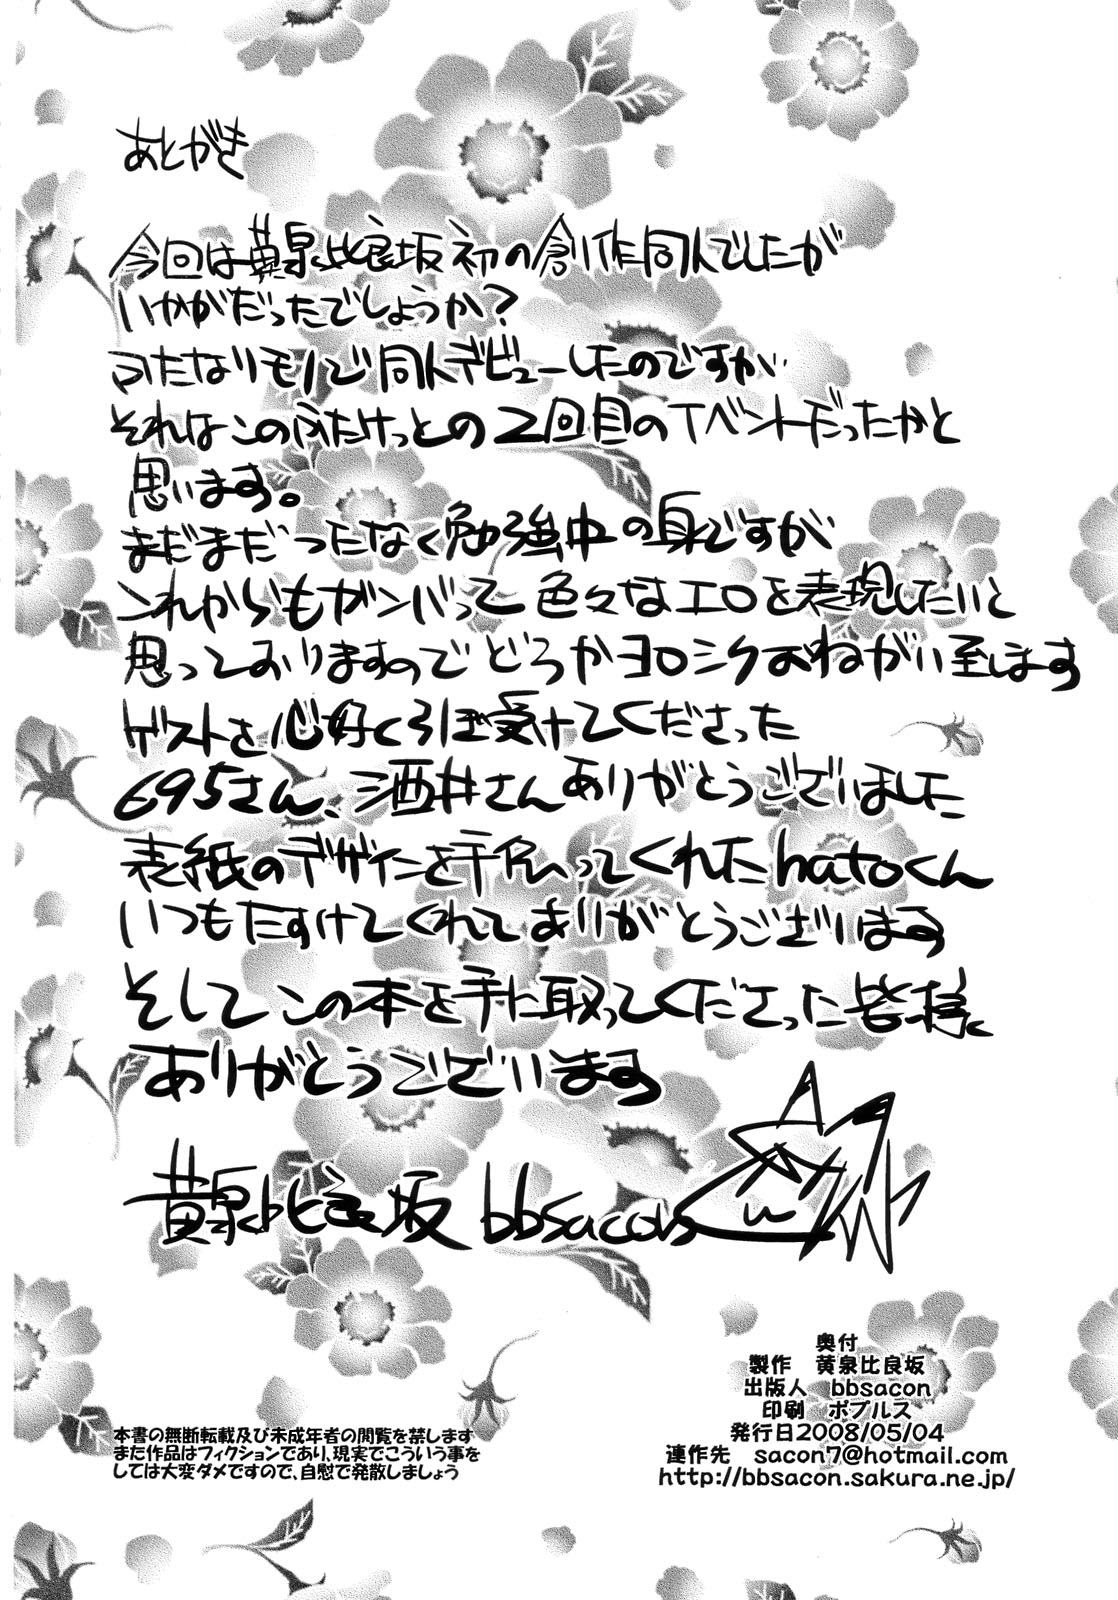 あとがき
今回は黄泉比良坂初の創作同人でしたが
いかがだったでしょうか？
ふたなりモノで同人デビューしたのですが
それはこのふたけっとの2回目のイベントだったかと
思います。
まだまだつたなく勉強中の身ですが
これからもガンバって色々なエロを表現したいと
思っておりますのでどうかヨロシクおねがい至します
ゲストを心好く引ぽ受けてくださった
695さん、酒井さんありがとうございました
表紙のデザインを手伝ってくれたhatoくん
いつもたすけてくれてありがとうございます
そしてこの本を手に取ってくださった皆様
ありがとうございます
黄泉比良坂 bbsacon
奥付
製作 黄泉比良坂
出版人 bbsacon
印刷 ポプルス
発行日2008/05/04
連作先 sacon7@hotmail.com
http://bbsacon.sakura.ne.jp/
本書の無断転載及び未成年者の閲覧を禁します
また作品はフィクションであり、現実でこういう事を
しては大変ダメですので、自慰で発散しましょう